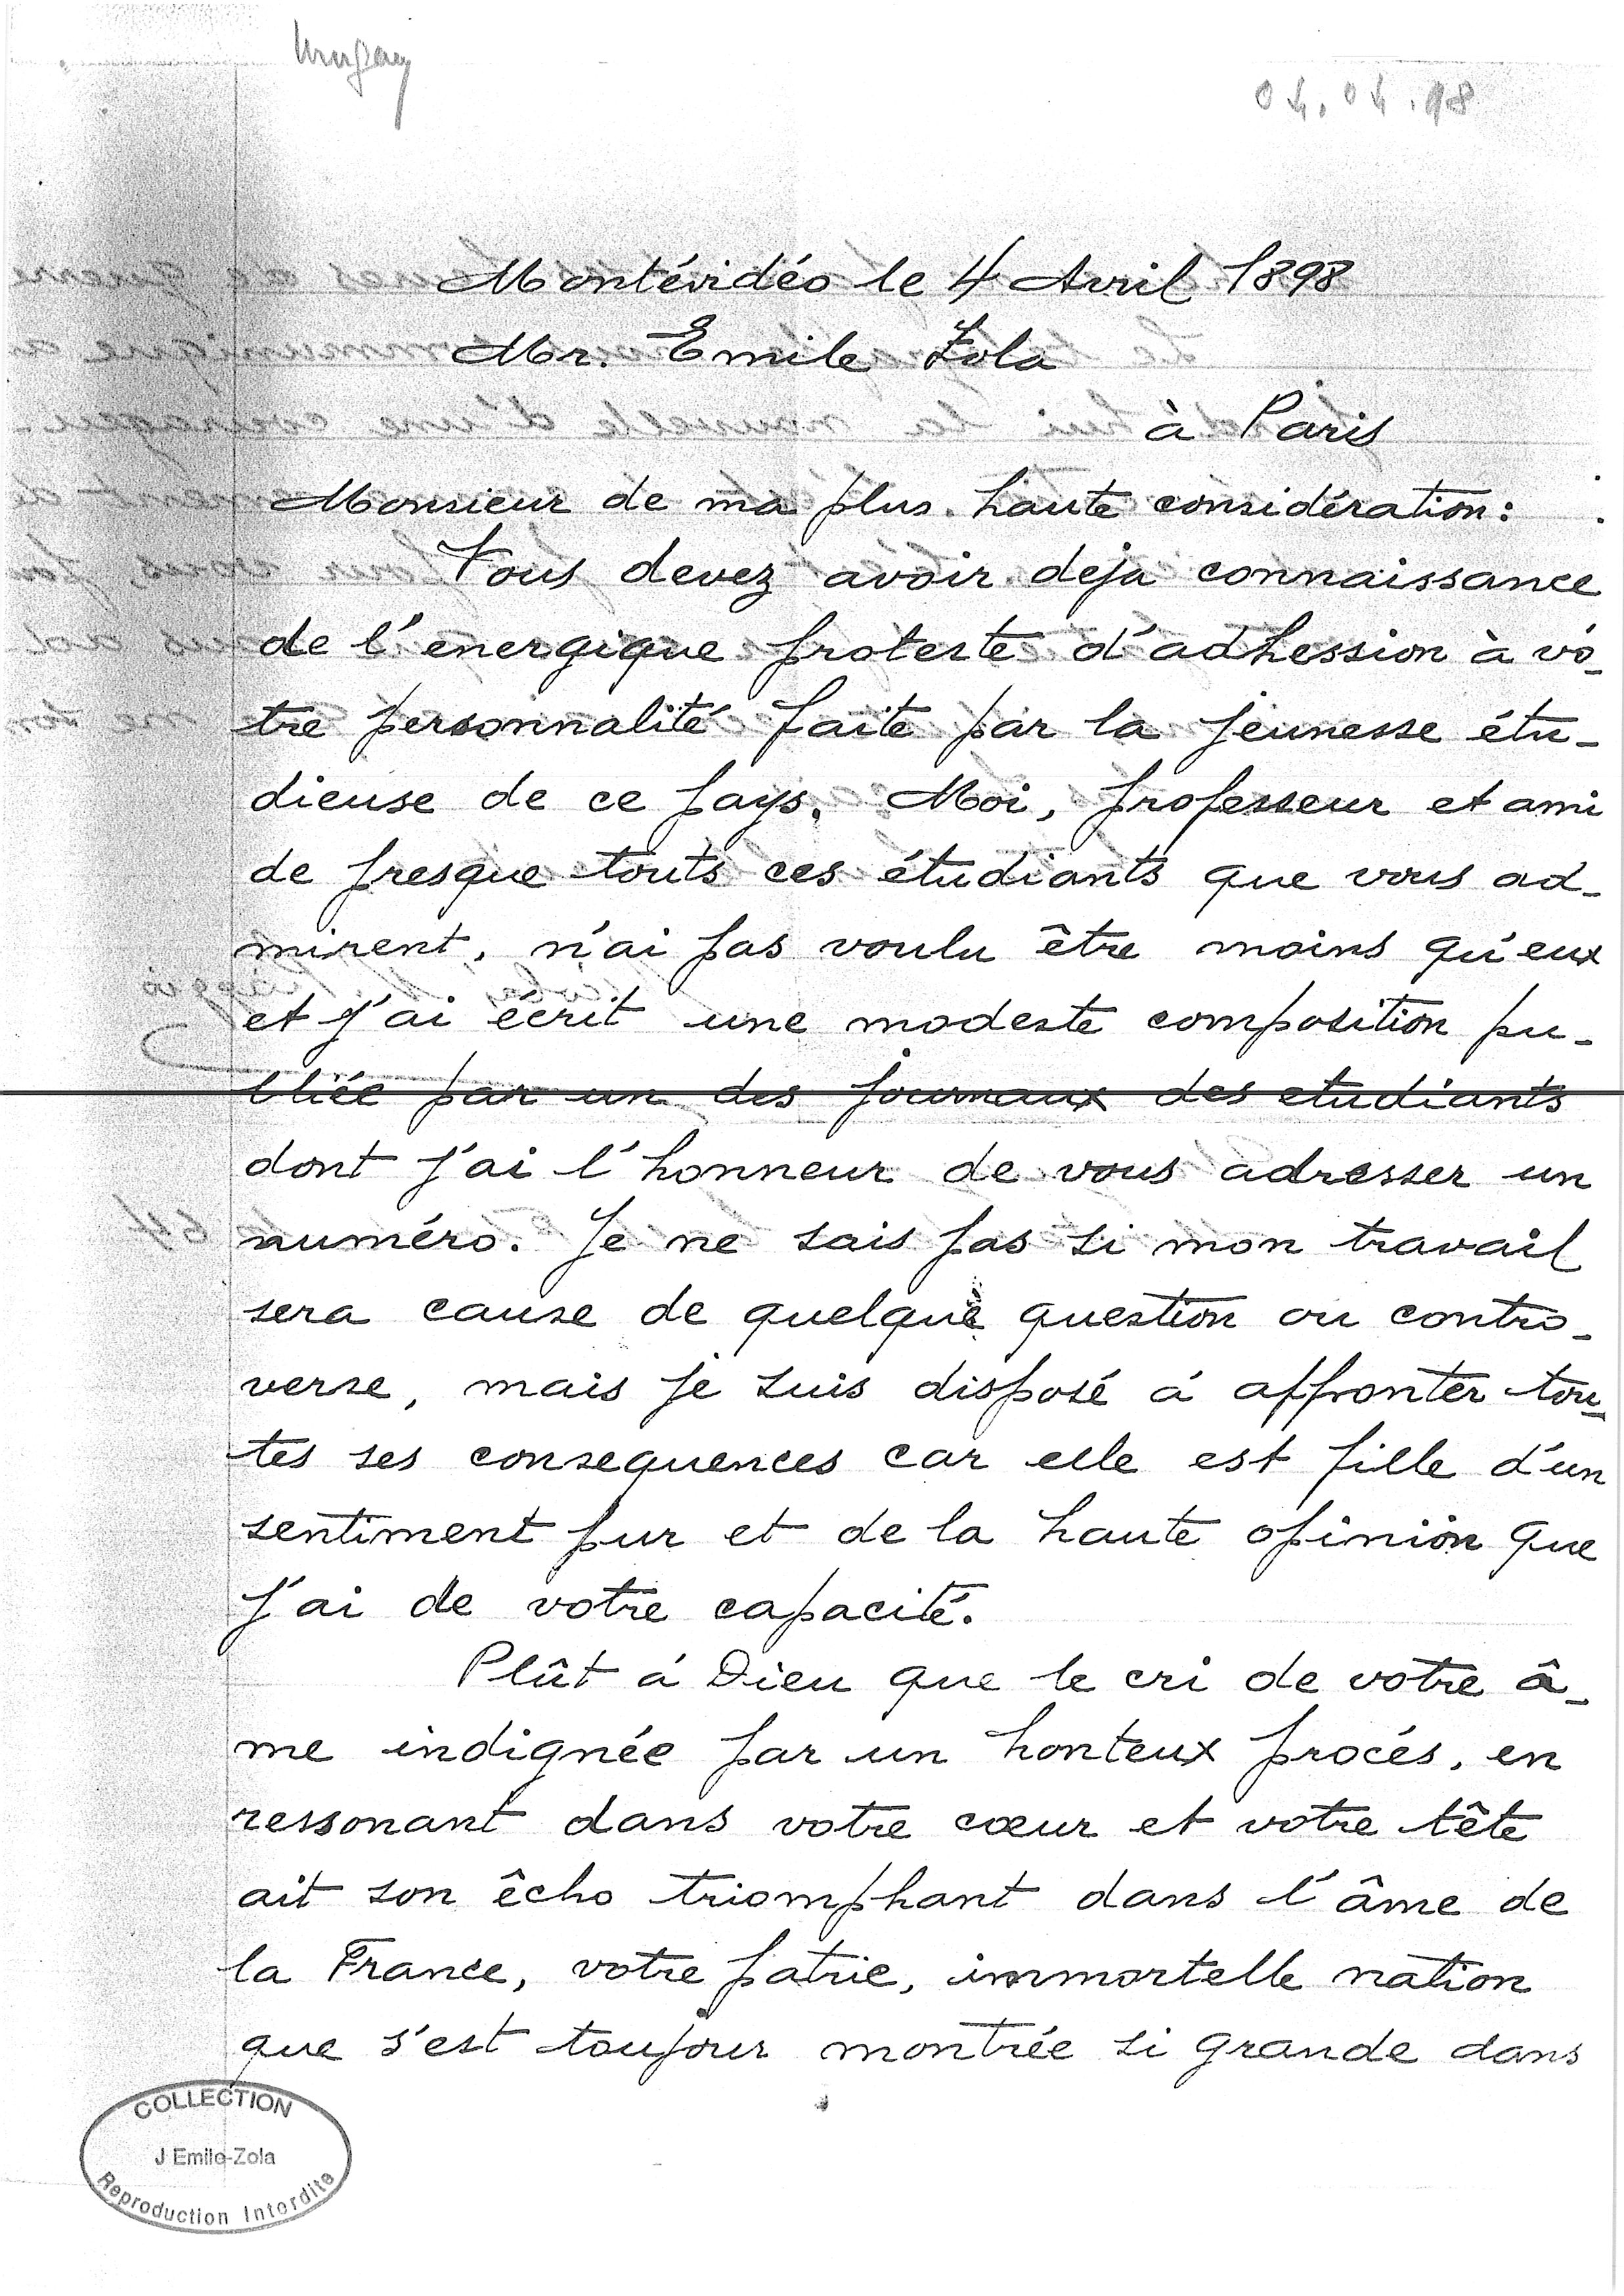 Urugay
04.04.98
Montévidéo le 4 Avril 1898
Mr. Emile Zola
à Paris
Monsieur de ma plus haute considération:
Vous devez avoir deja connaissance
de l'energique proteste d'adhession à vo-
tre personnalité faite par la jeunesse étu-
dieuse de ce pays. Moi, professeur et ami
de presque touts ces étudiants que vous ad-
mirent, n'ai pas voulu être moins qu'eux
et j'ai écrit une modeste composition pu-
bliée par un des journaux des etudiants
dont j'ai l'honneur de vous adresser un
numéro. Je ne sais pas si mon travail
sera cause de quelque question ou contro-
verse, mais je suis disposé á affronter tou-
tes ses consequences car elle est fille d'un
sentiment pur et de la haute opinion que
j'ai de votre capacité.
Plût á Dieu que le cri de votre â-
me indignée par un honteux procés, en
ressonant dans votre cœur et votre tête
ait son êcho triomphant dans l'âme de
la France, votre patrie, immortelle nation
que s'est toujour montrée si grande dans
COLLECTION
J Emile-Zola
Reproduction Interdite